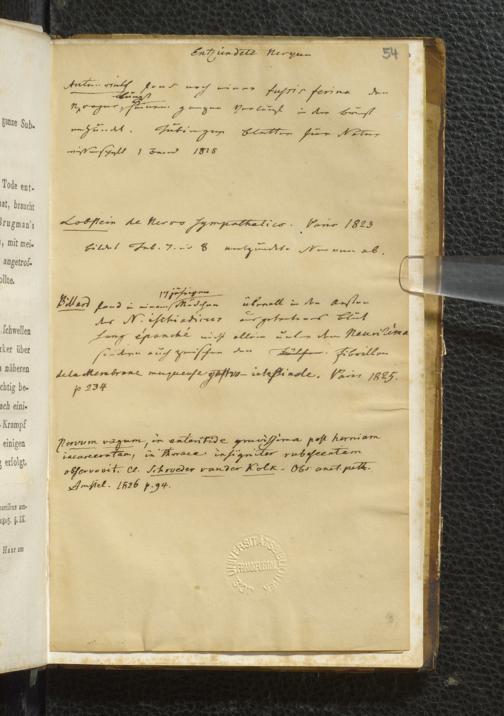 54
Entzündete Nerven
Autenrieth fand nach einer Tussis ferina den
längs
N. vagus, seinem ganzen Verlaufe in der Brust
entzündet. Tübinger Blätter für Natur
wissenschaft 1 Band 1815
Lobstein de Nervo sympathetico. Paris 1823
bildet Tab. 7. u 8 entzündete Nerven ab.
17jährigen
Billard fand in einem Mädchen überall in den Aesten
des N. ischiadicus ausgetretenes Blut
sang épanché nicht allein unter dem Neurilema
sondern auch zwischen den Fibrillen
de la Membrane muqueuse gastro intestinale. Paris 1825.
p 234
Nervum vagum, in exteritide gravissima post herniam
incarceratam, in thorace insigniter rubescentem
observavit. Cl. Schroeder van der Kolk. Obs anat path.
Amstel. 1826 p. 94.
ganze Sub-
Tode ent-
hat, braucht
Brugman's
, mit mei-
angetrof-
ollte.
Schwellen
rker über
näheren
chtig be-
ach eini-
Krampf
einigen
erfolgt.
Haar an